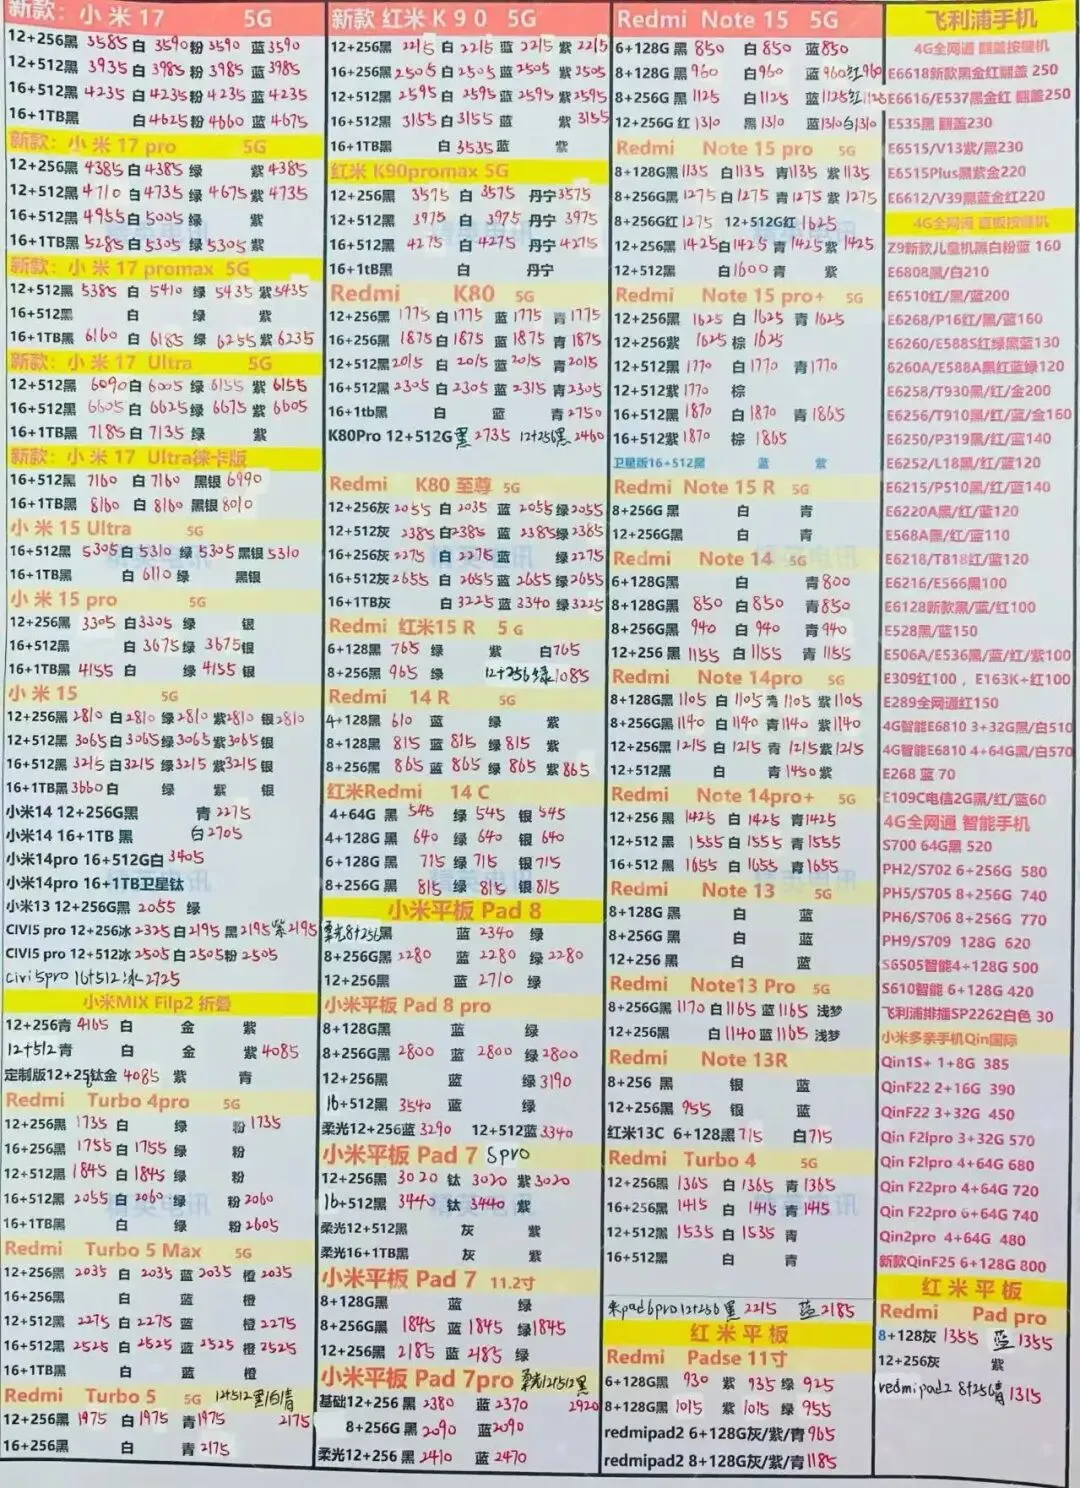 新款: 小 米 17 5G
12+256黑 3585 白 3590 粉 3590 蓝 3590
12+512黑 3935 白 3985 粉 3985 蓝 3985
16+512黑 4235 白 4235 粉 4235 蓝 4235
16+1TB黑 白 4625 粉 4660 蓝 4675
新款: 小 米 17 pro 5G
12+256黑 4385 白 4385 绿 紫 4385
12+512黑 4710 白 4735 绿 4675 紫 4735
16+512黑 4955 白 5005 绿 紫
16+1TB黑 5285 白 5305 绿 5305 紫
新款: 小 米 17 promax 5G
12+512黑 5385 白 5410 绿 5435 紫 5435
16+512黑 白 绿 紫
16+1TB黑 6160 白 6185 绿 6255 紫 6235
新款: 小 米 17 Ultra 5G
12+512黑 6090 白 6005 绿 6155 紫 6155
16+512黑 6605 白 6625 绿 6675 紫 6605
16+1TB黑 7185 白 7135 绿 紫
新款: 小 米 17 Ultra徕卡版
16+512黑 7160 白 7160 黑银 6990
16+1TB黑 8160 白 8160 黑银 8010
小 米 15 Ultra 5G
16+512黑 5305 白 5310 绿 5305 黑银 5310
16+1TB黑 白 6110 绿 黑银
小 米 15 pro 5G
12+256黑 3305 白 3305 绿 银
16+512黑 白 3675 绿 3675 银
16+1TB黑 4155 白 绿 4155 银
小 米 15 5G
12+256黑 2810 白 2810 绿 2810 紫 2810 银 2810
12+512黑 3065 白 3065 绿 3065 紫 3065 银
16+512黑 3215 白 3215 绿 3215 紫 3215 银
16+1TB黑 3660 白 绿 紫 银
小米14 12+256G黑 青 2275
小米14 16+1TB 黑 白 2705
小米14pro 16+512G白 3405
小米14pro 16+1TB卫星钛
小米13 12+256G黑 2055 绿
CIVI5 pro 12+256冰 2325 白 2195 黑 2195 紫 2195
CIVI5 pro 12+512冰 2505 白 2505 粉 2505
Civi 5pro 16+512 冰 2725
小米MIX Filp2 折叠
12+256青 4165 白 金 紫
12+512 青 白 金 紫 4085
定制版12+256钛金 4085 紫 青
Redmi Turbo 4pro 5G
12+256黑 1735 白 绿 粉 1735
16+256黑 1755 白 1755 绿 粉
12+512黑 1845 白 1845 绿 粉
16+512黑 2055 白 2060 绿 粉 2060
16+1TB黑 白 绿 粉 2605
Redmi Turbo 5 Max 5G
12+256黑 2035 白 2035 蓝 2035 橙 2035
16+256黑 白 蓝 橙
12+512黑 2275 白 2275 蓝 橙 2275
16+512黑 2525 白 2525 蓝 2525 橙 2525
16+1TB黑 白 蓝 橙
Redmi Turbo 5 5G 12+512 黑白青
12+256黑 1975 白 1975 青 1975 2175
16+256黑 白 青 2175
新款 红米 K 9 0 5G
12+256黑 2215 白 2215 蓝 2215 紫 2215
16+256黑 2505 白 2505 蓝 2505 紫 2505
12+512黑 2595 白 2595 蓝 2595 紫 2595
16+512黑 3155 白 3155 蓝 紫 3155
16+1TB黑 白 3535 蓝 紫
红米 K90promax 5G
12+256黑 3575 白 3575 丹宁 3575
12+512黑 3975 白 3975 丹宁 3975
16+512黑 4275 白 4275 丹宁 4275
16+1tB黑 白 丹宁
Redmi K80 5G
12+256黑 1775 白 1775 蓝 1775 青 1775
16+256黑 1875 白 1875 蓝 1875 青 1875
12+512黑 2015 白 2015 蓝 2015 青 2015
16+512黑 2305 白 2305 蓝 2315 青 2305
16+1tb黑 白 蓝 青 2750
K80Pro 12+512G 黑 2735 12+256黑 2460
Redmi K80 至尊 5G
12+256灰 2055 白 2035 蓝 2055 绿 2055
12+512灰 2385 白 2385 蓝 2385 绿 2385
16+256灰 2275 白 2275 蓝 绿 2275
16+512灰 2655 白 2655 蓝 2655 绿 2655
16+1TB灰 白 3225 蓝 3340 绿 3225
Redmi 红米15 R 5 G
6+128黑 765 绿 紫 白 765
8+256黑 965 绿 12+256绿 1085
Redmi 14 R 5G
4+128黑 610 蓝 绿 紫
8+128黑 815 蓝 815 绿 815 紫
8+256黑 865 蓝 865 绿 865 紫 865
红米Redmi 14 C
4+64G 黑 545 绿 545 银 545
4+128G 黑 640 绿 640 银 640
6+128G 黑 715 绿 715 银 715
8+256G 黑 815 绿 815 银 815
小米平板 Pad 8
柔光8+256黑 蓝 2340 绿
8+256G黑 2280 蓝 2280 绿 2280
12+256黑 蓝 2710 绿
小米平板 Pad 8 pro
8+128G黑 蓝 绿
8+256G黑 2800 蓝 2800 绿 2800
12+256黑 蓝 绿 3190
16+512黑 3540 蓝 绿
柔光12+256蓝 3290 12+512蓝 3340
小米平板 Pad 7 Spro
12+256黑 3020 钛 3020 紫 3020
16+512黑 3440 钛 3440 紫
柔光12+512黑 灰 紫
柔光16+1TB黑 灰 紫
小米平板 Pad 7 11.2寸
8+128G黑 蓝 绿
8+256G黑 1845 蓝 1845 绿 1845
12+256黑 2185 蓝 2185 绿
小米平板 Pad 7pro 柔光12+512黑
基础12+256 黑 2380 蓝 2370 2920
8+256G 黑 2090 蓝 2090
柔光12+256 黑 2410 蓝 2470
Redmi Note 15 5G
6+128G 黑 850 白 850 蓝 850
8+128G 黑 960 白 960 蓝 960 红 960
8+256G 黑 1125 白 1125 蓝 1125 红 1125
12+256G 红 1310 黑 1310 蓝 1310 白 1310
Redmi Note 15 pro 5G
8+128G黑 1135 白 1135 青 1135 紫 1135
8+256G黑 1275 白 1275 青 1275 紫 1275
8+256G红 1275 12+512G红 1625
12+256黑 1425 白 1425 青 1425 紫 1425
12+512黑 白 1600 青 紫
Redmi Note 15 pro+ 5G
12+256黑 1625 白 1625 青 1625
12+256紫 1625 棕 1625
12+512黑 1770 白 1770 青 1770
12+512紫 1770 棕
16+512黑 1870 白 1870 青 1865
16+512紫 1870 棕 1865
卫星版16+512黑 蓝 紫
Redmi Note 15 R 5G
8+256G黑 白 青
12+256G黑 白 青
Redmi Note 14 5G
6+128G黑 白 青 800
8+128G黑 850 白 850 青 850
8+256G黑 940 白 940 青 940
12+256 黑 1155 白 1155 青 1155
Redmi Note 14pro 5G
8+128G黑 1105 白 1105 青 1105 紫 1105
8+256G黑 1140 白 1140 青 1140 紫 1140
12+256黑 1215 白 1215 青 1215 紫 1215
12+512黑 白 青 1450 紫
Redmi Note 14pro+ 5G
12+256 黑 1425 白 1425 青 1425
12+512 黑 1555 白 1555 青 1555
16+512 黑 1655 白 1655 青 1655
Redmi Note 13 5G
8+128G 黑 白 蓝
8+256G 黑 白 蓝
12+256 黑 白 蓝
Redmi Note13 Pro 5G
8+256G黑 1170 白 1165 蓝 1165 浅梦
12+256黑 白 1140 蓝 1165 浅梦
Redmi Note 13R
8+256 黑 银 蓝
12+256黑 955 银 蓝
红米13C 6+128黑 715 白 715
Redmi Turbo 4 5G
12+256黑 1365 白 1365 青 1365
16+256黑 1415 白 1415 青 1415
12+512黑 1535 白 1535 青
16+512黑 白 青
米pad6pro 12+256 黑 2215 蓝 2185
红 米 平 板
Redmi Padse 11寸
6+128G黑 930 紫 935 绿 925
8+128G黑 1015 紫 1015 绿 955
redmipad2 6+128G灰/紫/青 965
redmipad2 8+256G灰/紫/青 1185
飞利浦手机
4G全网通 翻盖按键机
E6618新款黑金红翻盖 250
E6616/E537黑金红 翻盖250
E535黑 翻盖230
E6515/V13紫/黑230
E6515Plus黑紫金220
E6612/V39黑蓝金红220
4G全网通 直板按键机
Z9新款儿童机黑白粉蓝 160
E6808黑/白210
E6510红/黑/蓝200
E6268/P16红/黑/蓝160
E6260/E588S红绿黑蓝130
6260A/E588A黑红蓝绿120
E6258/T930黑/红/金200
E6256/T910黑/红/蓝/金160
E6250/P319黑/红/蓝140
E6252/L18黑/红/蓝120
E6215/P510黑/红/蓝140
E6220A黑/红/蓝120
E568A黑/红/蓝110
E6218/TB18红/蓝120
E6216/E566黑100
E6128新款黑/蓝/红100
E528黑/蓝150
E506A/E536黑/蓝/红/紫100
E309红100 , E163K+红100
E289全网通红150
4G智能E6810 3+32G黑/白510
4G智能E6810 4+64G黑/白570
E268 蓝 70
E109C电信2G黑/红/蓝60
4G全网通 智能手机
S700 64G黑 520
PH2/S702 6+256G 580
PH5/S705 8+256G 740
PH6/S706 8+256G 770
PH9/S709 128G 620
S6505智能4+128G 500
S610智能 6+128G 420
飞利浦排插SP2262白色 30
小米多亲手机Qin国际
Qin1S+ 1+8G 385
QinF22 2+16G 390
QinF22 3+32G 450
Qin F2lpro 3+32G 570
Qin F2lpro 4+64G 680
Qin F22pro 4+64G 720
Qin F22pro 6+64G 740
Qin2pro 4+64G 480
新款QinF25 6+128G 800
红 米 平 板
Redmi Pad pro
8+128灰 1355 蓝 1355
12+256灰 紫
redmipad2 8+256青 1315